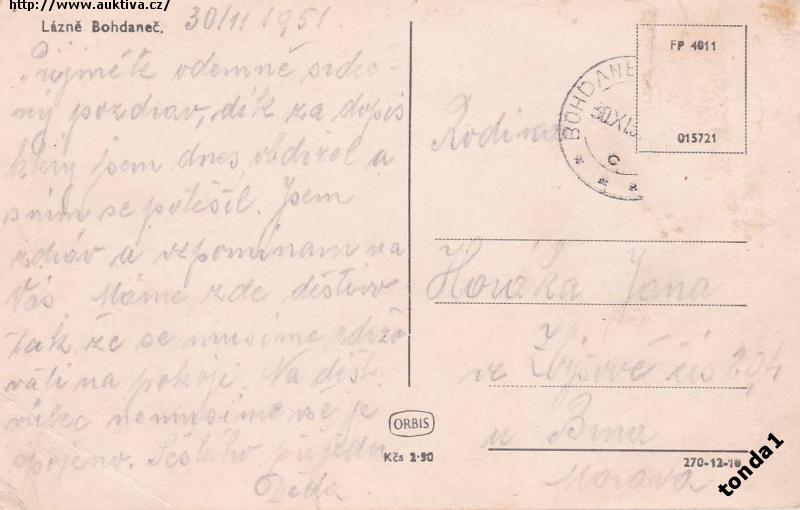 http://www.auktiva.cz/
Lázně Bohdaneč. 30/11 1951
Přijměte odemně srdeč-
ný pozdrav, dík za dopis
který jsem dnes obdržel a
s ním se potěšil. Jsem
zdráv a vzpomínám na
Vás Máme zde deštivo
tak že se musíme zdržo
vati na pokoji. Na déšť
vůbec nemusíme vše je
spojeno. Šestého přijedu
Děda
FP 4011
015721
BOHDANE
30.XI.5
C
Rodina
Horáka Jana
ve Zbýšově čís 204
u Brna
Morava
ORBIS
Kčs 2·50
270-12-18
tonda1